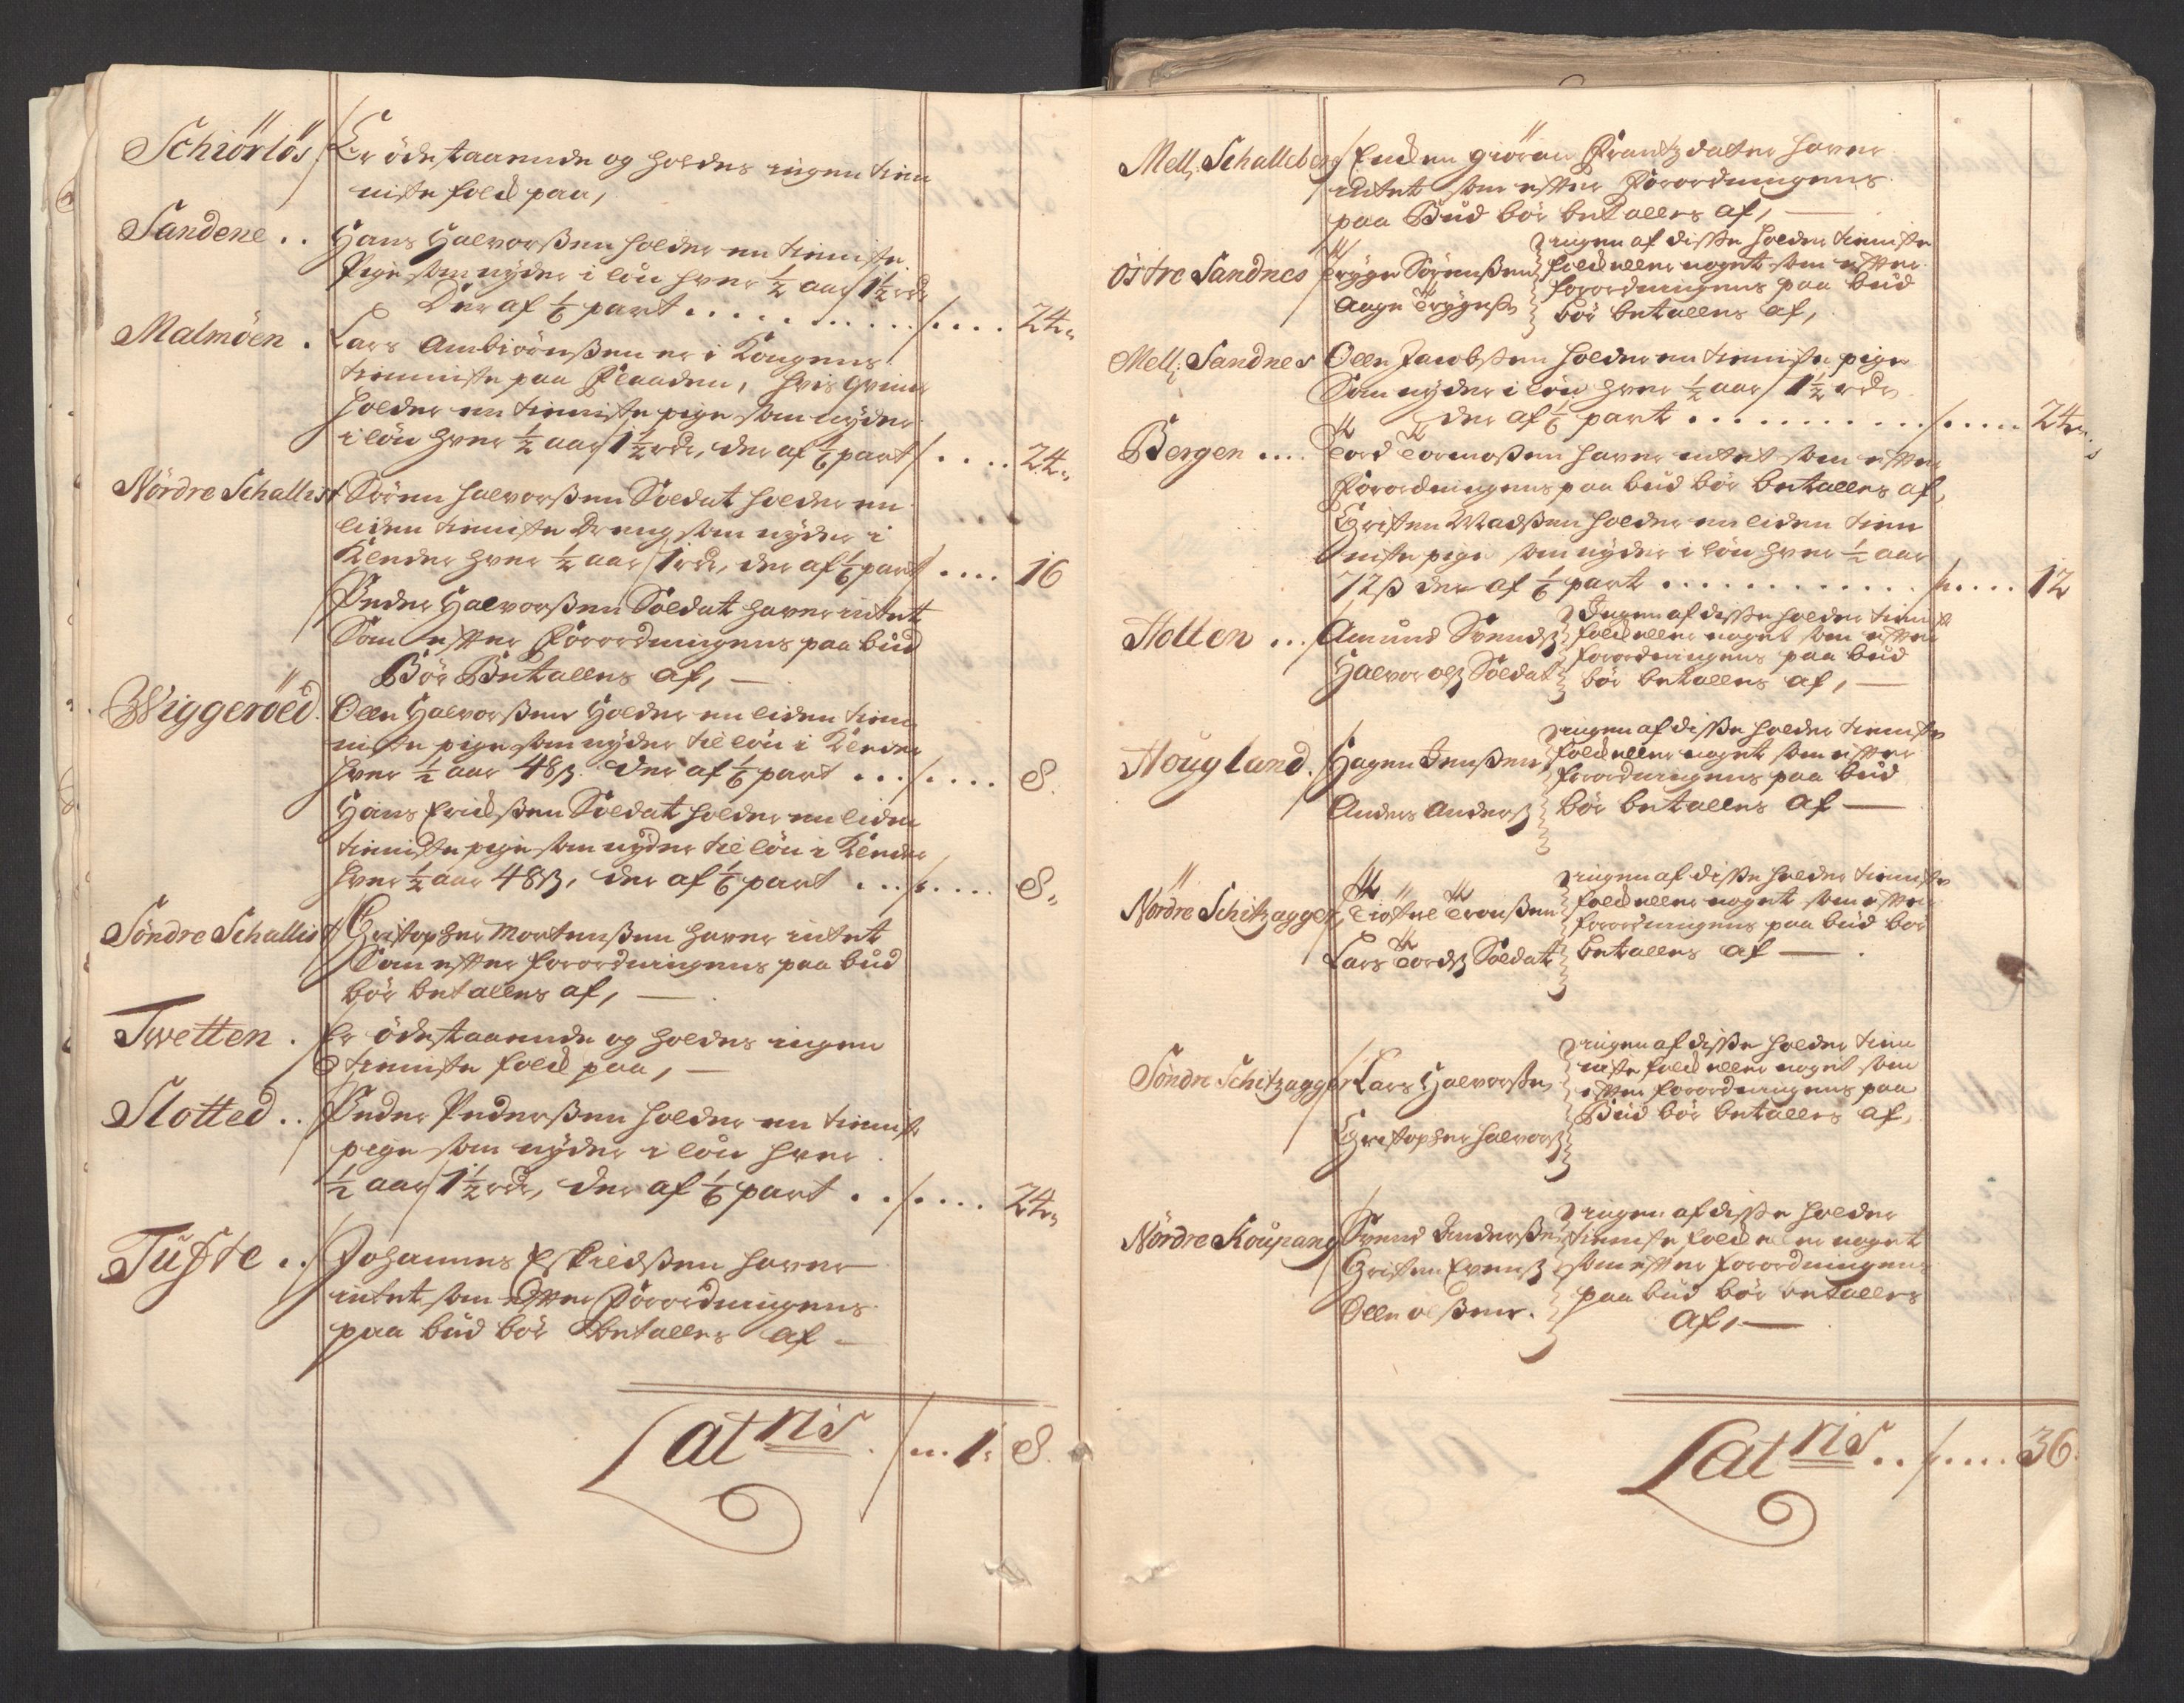 Schiörlös Er öde staaende og holdes ingen tien
niste folck paa,
Sandene .. Hans Halvorßen holder en tieniste
Pige som nÿder i lön hver ½ aar 1½ rdr
Der af 1/6 part . . . . . . . . . . . 24
Malmöen . Lars Ambiörnßen er i Kongens
tienniste paa Flaaden, hvis qvinde
holder en tieniste pige som nÿder
i lön hver ½ aar 1½ rdr, der af 1/6 part . . . . 24
Nördre Schallist Sören Halvorßen Soldat holder en
liden tieniste dreng som nÿder i
Klæder hver ½ aar 1 rdr, der af 1/6 part . . . . 16
Peder Halvorßen Soldat haver intet
Som efter Forordningens paa bud
Bör Betalles af, —
Wiggeröed. Olle Halvorßen Holder en liden tien
niste pige som nÿder til lön i Klæder
hver ½ aar 48 ß. der af 1/6 part . . . . . . . 8.
Hans Erichßen Soldat holder en liden
tieniste pige som nÿder til lön i Klæder
hver ½ aar 48 ß, der af 1/6 part . . . . . . . 8
Söndre Schallist Christopher Mortenßen haver intet
Som efter forordningens paa bud
bör betalles af, —
Twetten . Er öde staaende og holdes ingen
tieniste folck paa, —
Slotted .. Peder Pederßen holder en tieniste
pige som nÿder i lön hver
½ aar 1½ rdr, der af 1/6 part . . . . . . 24
Tufte .. Johannes Eskildßen haver
intet som efter Forordningens
paa bud bör betalles af —
Latris . 1. 8.
Mell. Schalleberg Encken Giöran Frantzdatter haver
intet som efter Forordningens
paa Bud bör betalles af, —
östre Sandnes Trÿge Sörenßen
Aage Trÿgeß
ingen af diße holder tieniste
folck eller noget som efter
forordningens paa bud
bör betalles af,
Mell: Sandnes Olle Jacobßen holder en tieniste pige
Som nÿder i lön hver ½ aar 1½ rdr
der af 1/6 part . . . . . . . . . . . . . 24
Bergen .... Tord Tormoßen haver intet som efter
Forordningens paa bud bör betalles af,
Christen Madßen holder en liden tien
niste pige som nÿder i lön hver ½ aar
72 ß der af 1/6 part . . . . . . . . . . . . . 12
Holten ... Amund Svendß
Halvor Olß Soldat
Ingen af diße holder tienist
folck eller noget som efter
forordningens paa bud
bör betalles af, —
Hougland. Hagen Jenßen
Anders Anderß
ingen af diße holder tieniste
folck eller noget som efter
forordningens paa bud
bör betalles af —
Nördre Schitzagger, Tiöstel Tronßen
Lars Tordß Soldat
ingen af diße holder tieniste
folck eller noget som efter
forordningens paa bud bör
betalles af — .
Söndre Schitzagger Lars Halvorßen
Christopher Halvorß
ingen af diße holder tien
niste folck eller noget som
efter forordningens paa
Bud bör betalles af,
Nördre Koupang Svend Anderßen
Christen Evenß
Olle Olßen.
ingen af diße holder
tieniste folck eller noget
som efter forordningens
paa bud bör betalles
af, —
Latris .. . . . . 36.